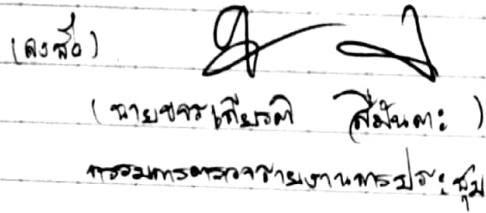 (ลงชื่อ)
(นายขจรเกียรติ สีมันตะ)
กรรมการตรวจรายงานการประชุม